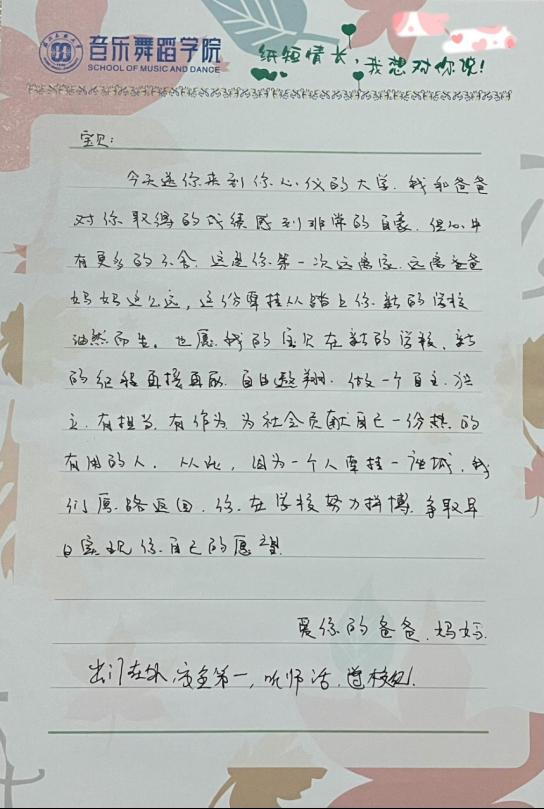 音乐舞蹈学院
SCHOOL OF MUSIC AND DANCE
纸短情长,我想对你说!
宝贝:
今天送你来到你心仪的大学.我和爸爸
对你取得的成绩感到非常的自豪.但心中
有更多的不舍.这是你第一次远离家.远离爸爸
妈妈这么远,这份牵挂从踏上你新的学校
油然而生。也愿我的宝贝在新的学校、新
的征程再接再厉.自由翱翔.做一个自主.独
立.有担当.有作为.为社会贡献自己一份热的
有用的人.从此,因为一个人牵挂一座城.我
们原路返回.你在学校努力拼搏.争取早
日实现你自己的愿望.
爱你的爸爸.妈妈.
出门在外,安全第一,听师话,遵校纪.